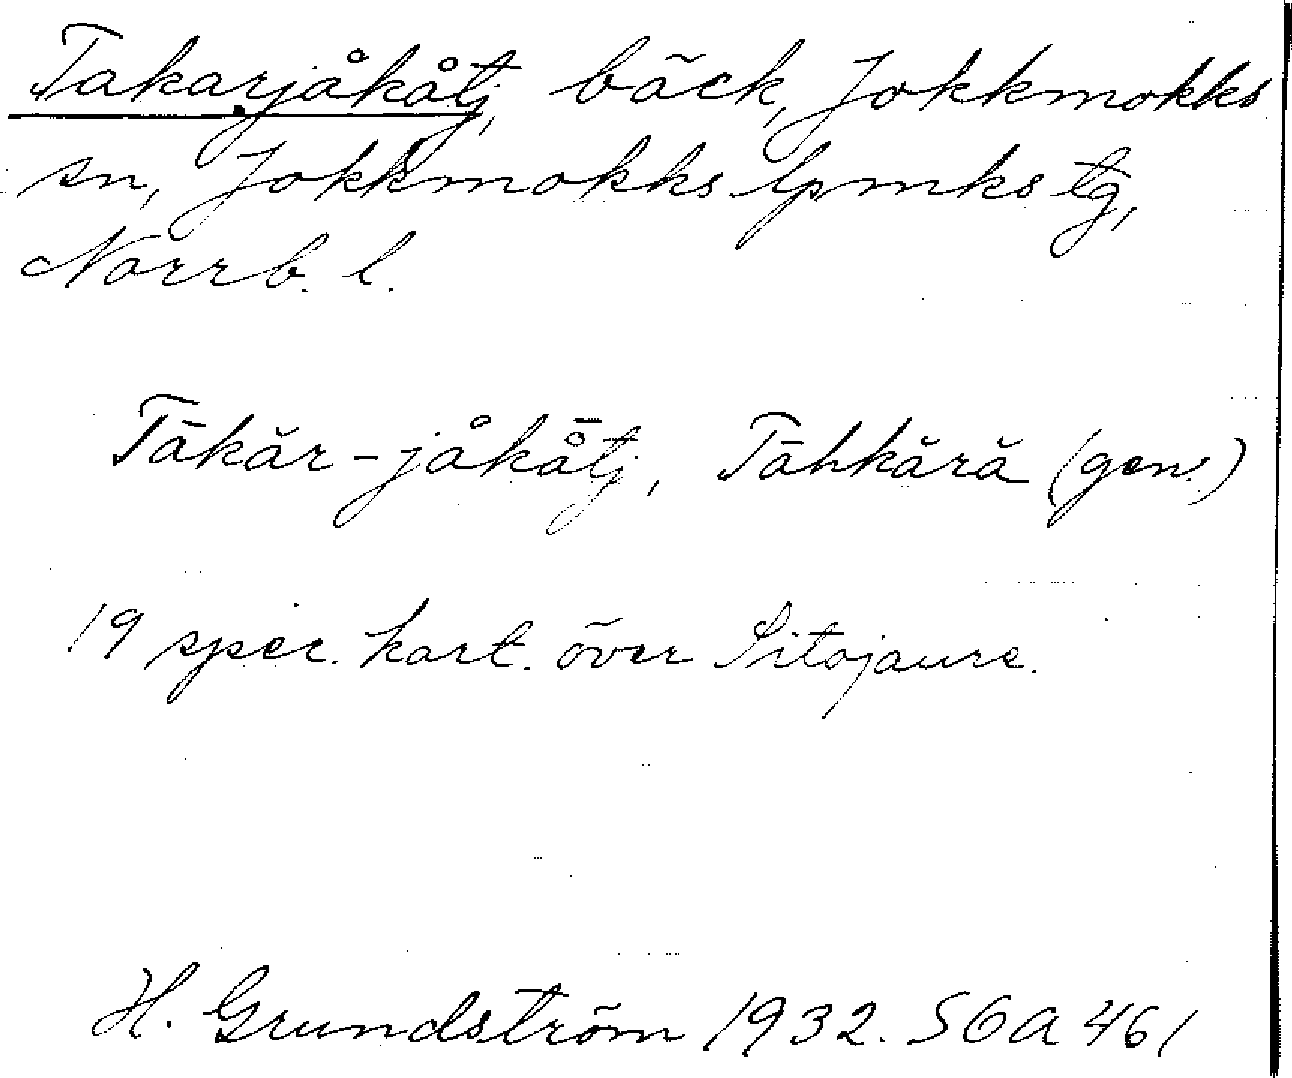 Takarjåkåtj, bäck, Jokkmokks
sn, Jokkmokks lpmks tg,
Norrb. l.
Tākăr-jåkå̄tj, Tāhkără (gen.)
19 spec. kart. över Sitojaure.
H. Grundström 1932. SOA 461